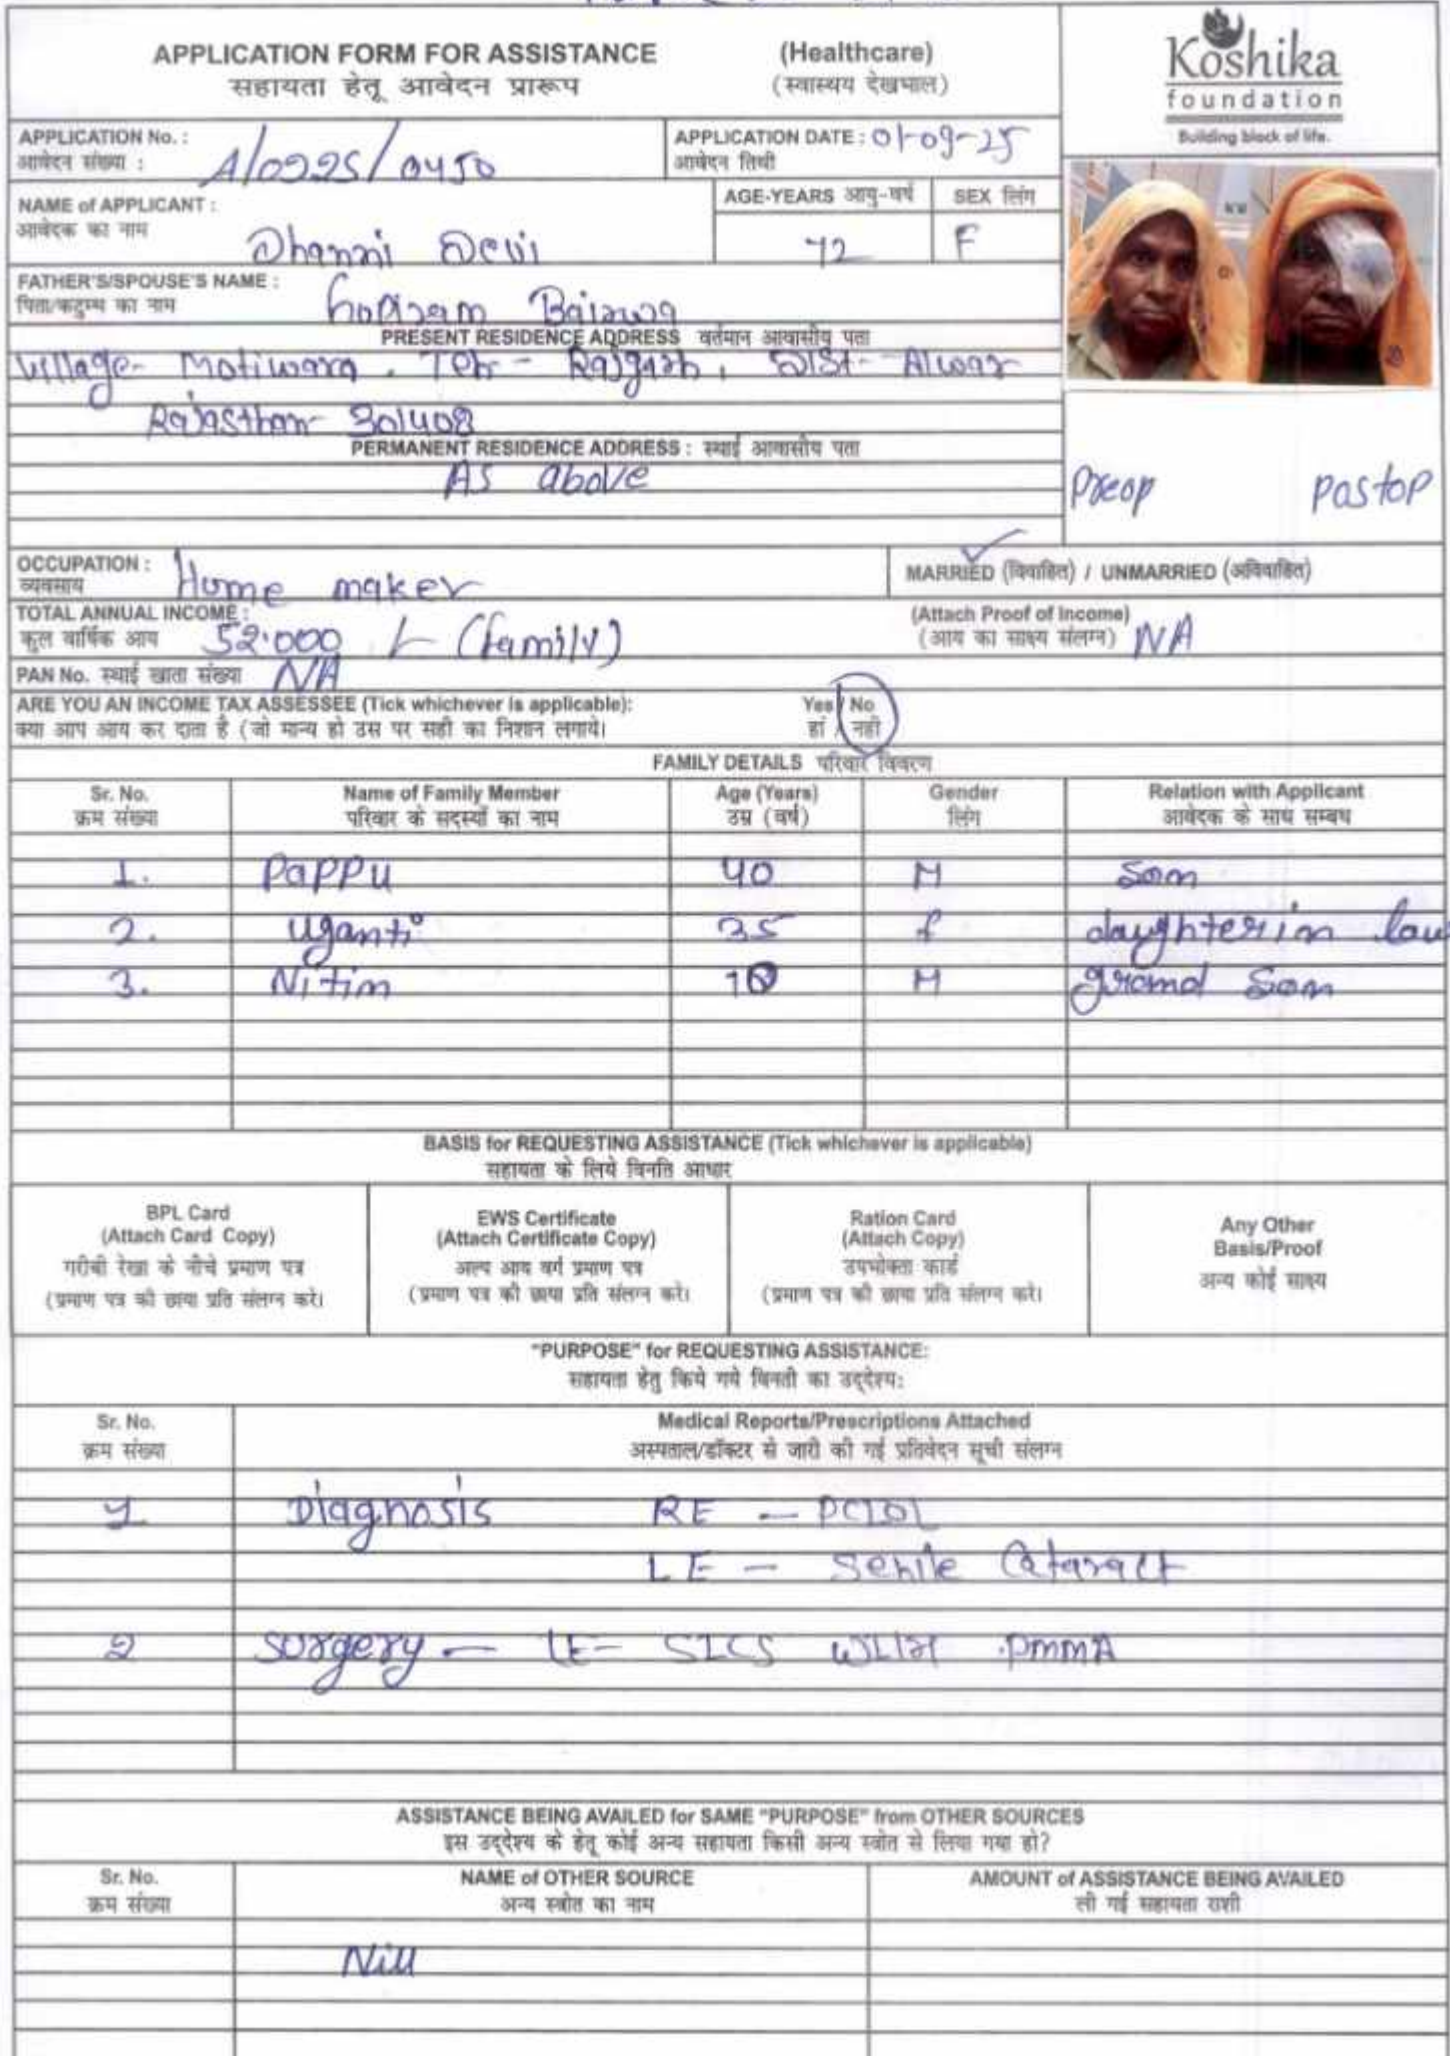 APPLICATION FORM FOR ASSISTANCE (Healthcare)
सहायता हेतू आवेदन प्रारूप (स्वास्थय देखभाल)
Koshika
foundation
Building block of life.
APPLICATION No. : A/0225/0450
आवेदन संख्या :
APPLICATION DATE : 01-09-25
आवेदन तिथी
NAME of APPLICANT : Dhanni Devi
आवेदक का नाम
AGE-YEARS आयु-वर्ष 72
SEX लिंग F
FATHER'S/SPOUSE'S NAME :
पिता/कटुम्ब का नाम Bairwa
PRESENT RESIDENCE ADDRESS वर्तमान आवासीय पता
Village- Motiwara . Teh - Rajgarh, Dist- Alwar
Rajasthan- 301408
PERMANENT RESIDENCE ADDRESS : स्थाई आवासीय पता
As above
Preop postop
OCCUPATION : Home maker
व्यवसाय
MARRIED (विवाहित) / UNMARRIED (अविवाहित)
TOTAL ANNUAL INCOME :
कुल वार्षिक आय 52.000 /- (family)
(Attach Proof of Income)
(आय का साक्ष्य संलग्न) NA
PAN No. स्थाई खाता संख्या NA
ARE YOU AN INCOME TAX ASSESSEE (Tick whichever is applicable): Yes / No
क्या आप आय कर दाता है (जो मान्य हो उस पर सही का निशान लगाये। हां / नही
FAMILY DETAILS परिवार विवरण
Sr. No. Name of Family Member Age (Years) Gender Relation with Applicant
क्रम संख्या परिवार के सदस्यों का नाम उम्र (वर्ष) लिंग आवेदक के साथ सम्बध
1. Pappu 40 M Son
2. Uganti 35 f daughter in law
3. Nitin M grand Son
BASIS for REQUESTING ASSISTANCE (Tick whichever is applicable)
सहायता के लिये विनति आधार
BPL Card
(Attach Card Copy)
गरीबी रेखा के नीचे प्रमाण पत्र
(प्रमाण पत्र की छाया प्रति संलग्न करे।
EWS Certificate
(Attach Certificate Copy)
अल्प आय वर्ग प्रमाण पत्र
(प्रमाण पत्र की छाया प्रति संलग्न करे।
Ration Card
(Attach Copy)
उपभोक्ता कार्ड
(प्रमाण पत्र की छाया प्रति संलग्न करे।
Any Other
Basis/Proof
अन्य कोई साक्ष्य
"PURPOSE" for REQUESTING ASSISTANCE:
सहायता हेतु किये गये विनती का उद्देश्य:
Sr. No. Medical Reports/Prescriptions Attached
क्रम संख्या अस्पताल/डॉक्टर से जारी की गई प्रतिवेदन सूची संलग्न
1 Diagnosis RE - PCIOL
LE - Senile Cataract
2 Surgery - LE- SICS with PMMA
ASSISTANCE BEING AVAILED for SAME "PURPOSE" from OTHER SOURCES
इस उद्देश्य के हेतू कोई अन्य सहायता किसी अन्य स्त्रोत से लिया गया हो?
Sr. No. NAME of OTHER SOURCE AMOUNT of ASSISTANCE BEING AVAILED
क्रम संख्या अन्य स्त्रोत का नाम ली गई सहायता राशी
Nill